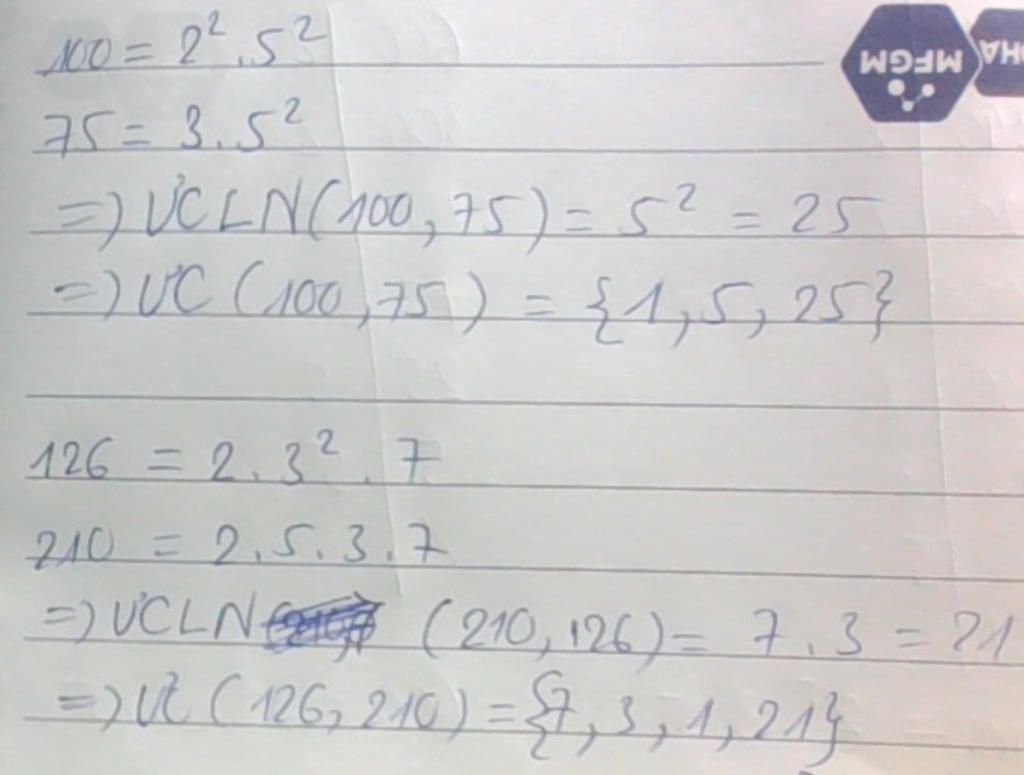 100 = 2². 5²
75 = 3. 5²
=) ƯCLN(100, 75) = 5² = 25
=) ƯC (100, 75) = {1, 5, 25}
126 = 2. 3². 7
210 = 2. 5. 3. 7
=) ƯCLN (210, 126) = 7. 3 = 21
=) ƯC (126, 210) = {7, 3, 1, 21}
MFGM